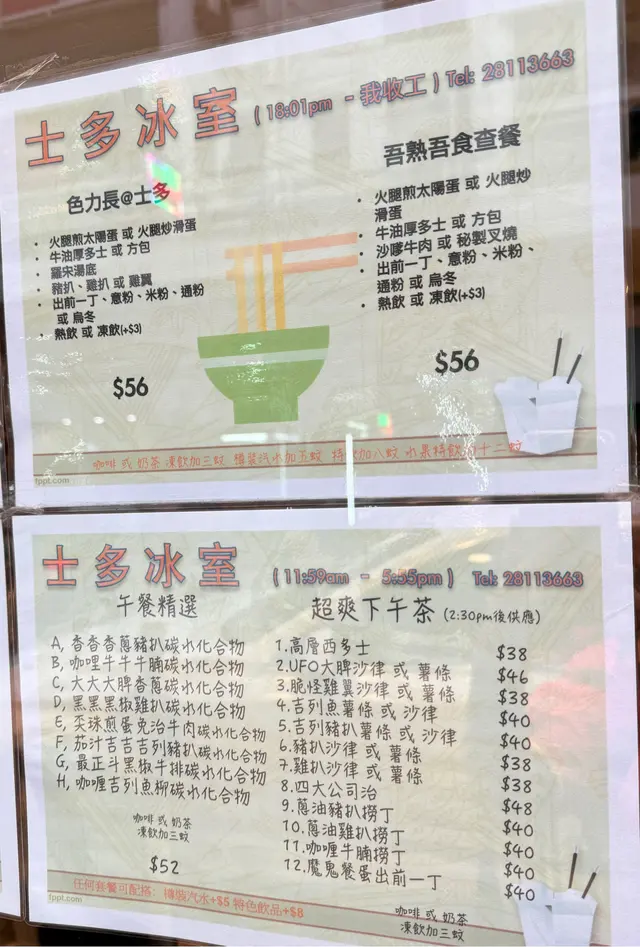 士多冰室 (18:01pm - 我收工) Tel: 28113663
色力長@士多
• 火腿煎太陽蛋 或 火腿炒滑蛋
• 牛油厚多士 或 方包
• 羅宋湯底
• 豬扒、雞扒 或 雞翼
• 出前一丁、意粉、米粉、通粉
或 烏冬
• 熱飲 或 凍飲(+$3)
$56
吾熟吾食查餐
• 火腿煎太陽蛋 或 火腿炒
滑蛋
• 牛油厚多士 或 方包
• 沙嗲牛肉 或 秘製叉燒
• 出前一丁、意粉、米粉、
通粉 或 烏冬
• 熱飲 或 凍飲(+$3)
$56
咖啡 或 奶茶 凍飲加三蚊 樽裝汽水加五蚊 特飲加八蚊 水果特飲加十二蚊
fppt.com
士多冰室 (11:59am - 5:55pm) Tel: 28113663
午餐精選
A, 香香香蔥豬扒碳水化合物
B, 咖哩牛牛牛腩碳水化合物
C, 大大大脾香蔥碳水化合物
D, 黑黑黑椒雞扒碳水化合物
E, 奕珠煎蛋免治牛肉碳水化合物
F, 茄汁吉吉吉列豬扒碳水化合物
G, 最正斗黑椒牛排碳水化合物
H, 咖喱吉列魚柳碳水化合物
咖啡 或 奶茶
凍飲加三蚊
$52
超爽下午茶 (2:30pm後供應)
1.高層西多士 $38
2.UFO大脾沙律 或 薯條 $46
3.脆怪雞翼沙律 或 薯條 $38
4.吉列魚薯條 或 沙律 $40
5.吉列豬扒薯條 或 沙律 $40
6.豬扒沙律 或 薯條 $38
7.雞扒沙律 或 薯條 $38
8.四大公司治 $48
9.蔥油豬扒撈丁 $40
10.蔥油雞扒撈丁 $40
11.咖喱牛腩撈丁 $40
12.魔鬼餐蛋出前一丁 $40
任何套餐可配搭: 樽裝汽水+$5 特色飲品+$8
咖啡 或 奶茶
凍飲加三蚊
fppt.com